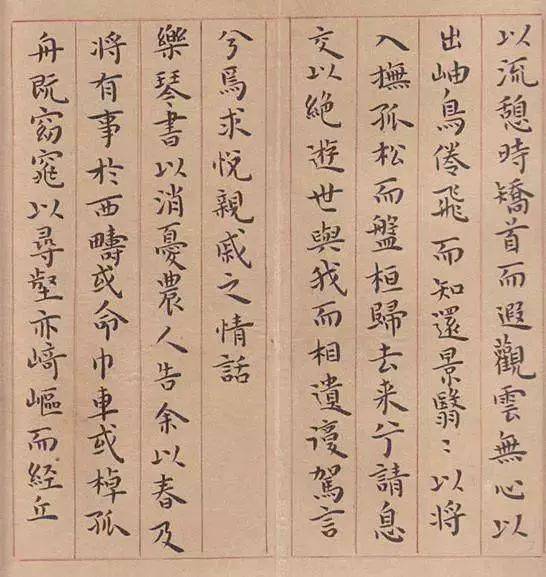 以流憩時矯首而遐觀雲無心以
出岫鳥倦飛而知還景翳〻以將
入撫孤松而盤桓歸去来兮請息
交以絶遊世與我而相遺復駕言
兮焉求悦親戚之情話
樂琴書以消憂農人告余以春及
將有事於西疇或命巾車或棹孤
舟既窈窕以尋壑亦崎嶇而経丘